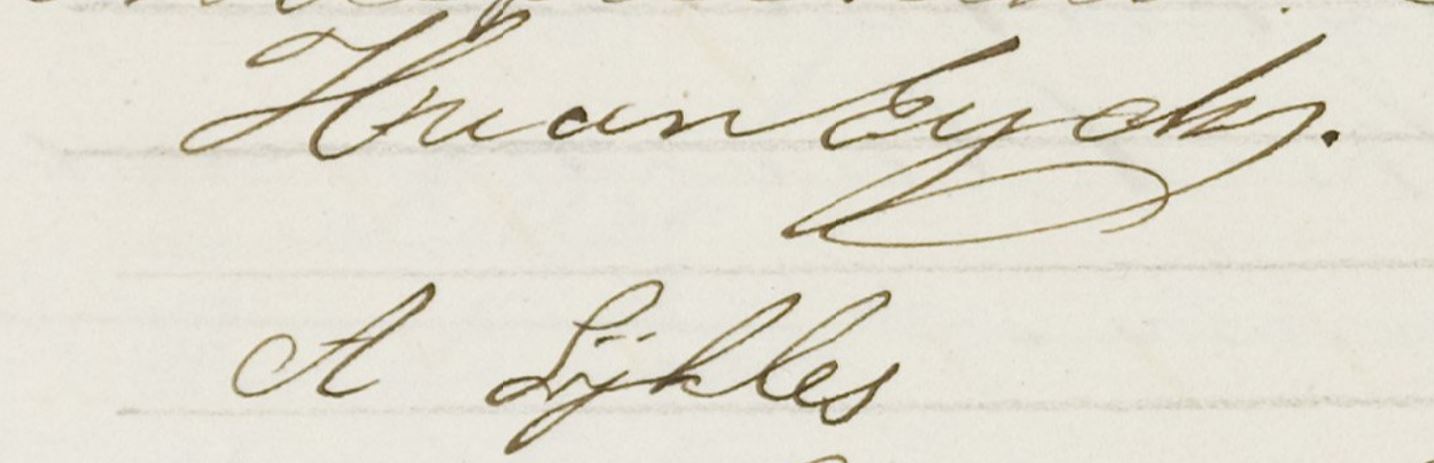 H van Eyck.
A Lijkles